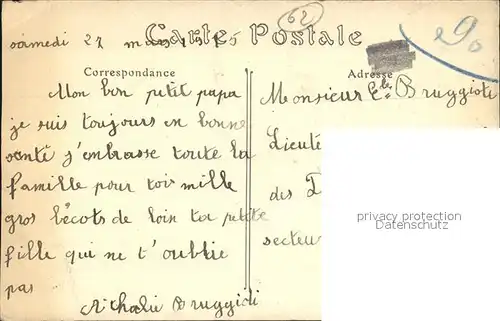 samedi 27 mars 1915
Carte Postale
62
Correspondance
Adresse
Mon bon petit papa
je suis toujours en bonne
santé j'embrasse toute la
famille pour toi mille
gros bécots de loin ta petite
fille qui ne t'oublie
pas
Nathalie Bruggioti
Monsieur Ele Bruggioti
Lieute
des
secteur
privacy protection
Datenschutz